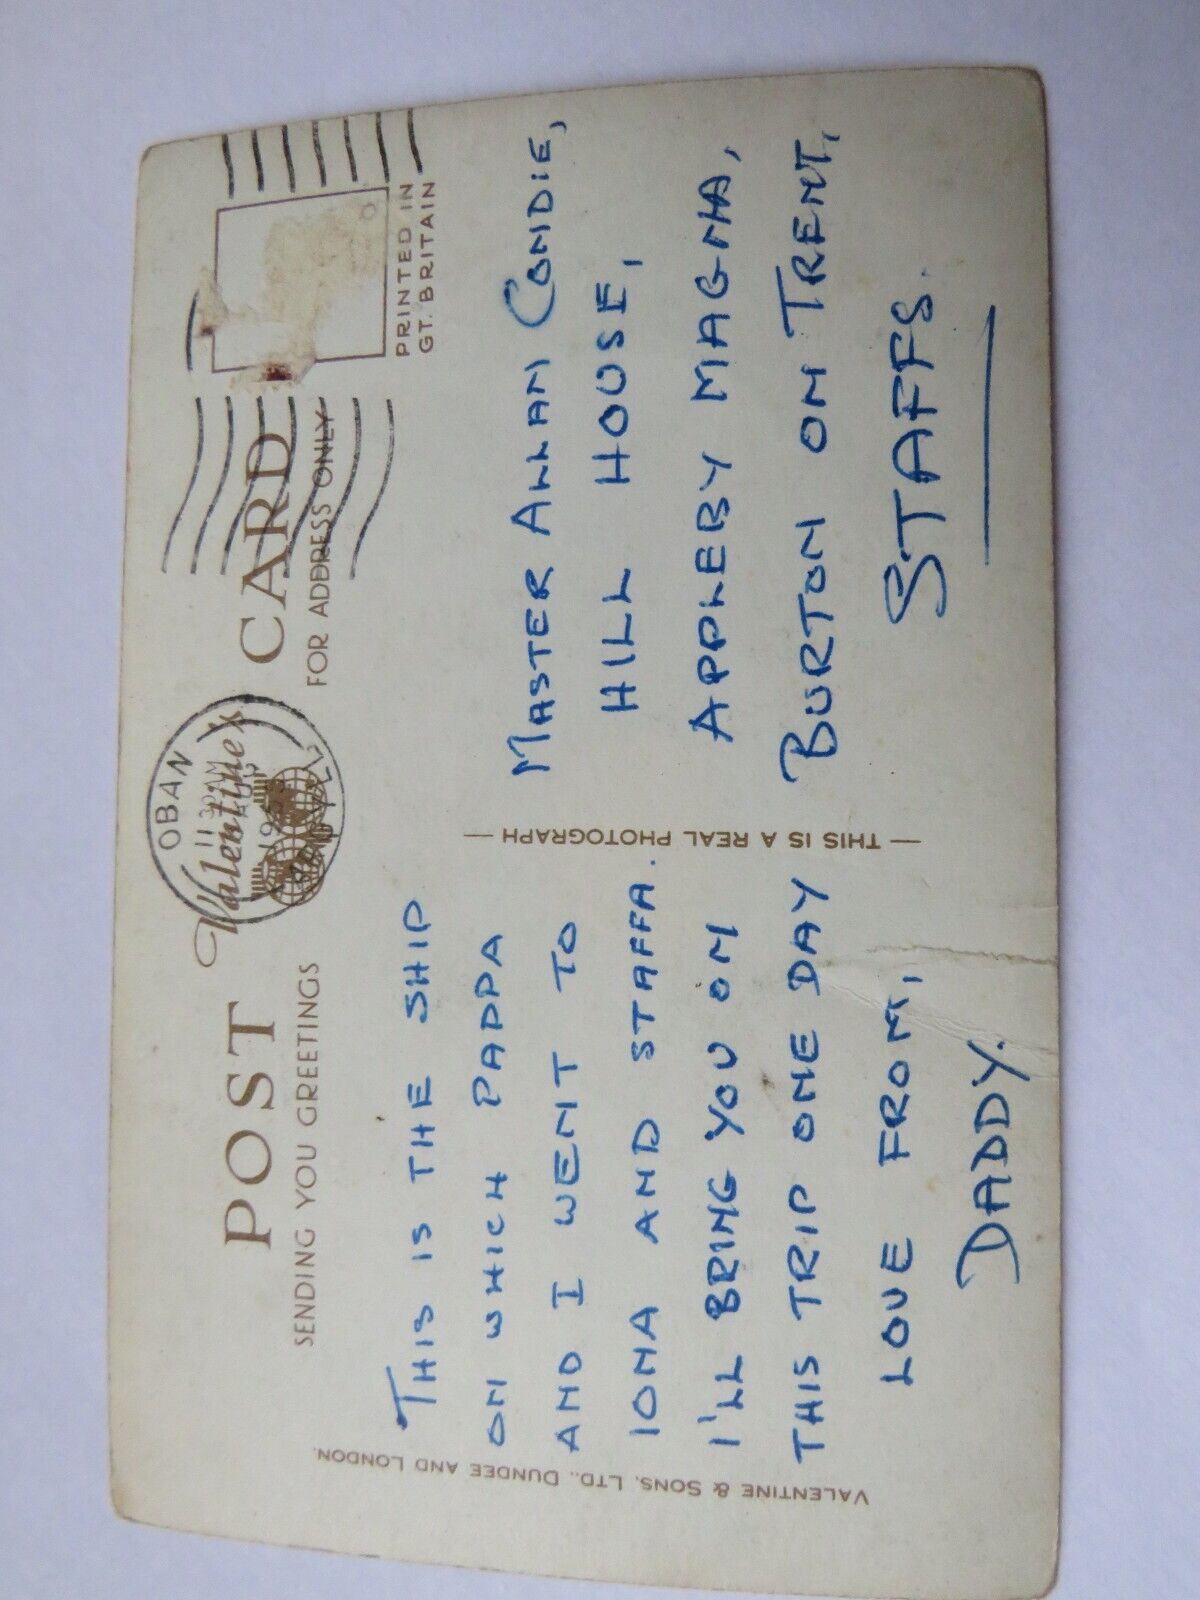 POST Valentine's CARD
SENDING YOU GREETINGS
FOR ADDRESS ONLY
PRINTED IN
GT. BRITAIN
OBAN
1130AM
ARGYLL
THIS IS THE SHIP
ON WHICH PAPPA
AND I WENT TO
IONA AND STAFFA.
I'LL BRING YOU ON
THIS TRIP ONE DAY
LOVE FROM,
DADDY.
— THIS IS A REAL PHOTOGRAPH —
VALENTINE & SONS, LTD., DUNDEE AND LONDON.
MASTER ALLAN CONDIE,
HILL HOUSE,
APPLEBY MAGNA,
BURTON ON TRENT,
STAFFS.